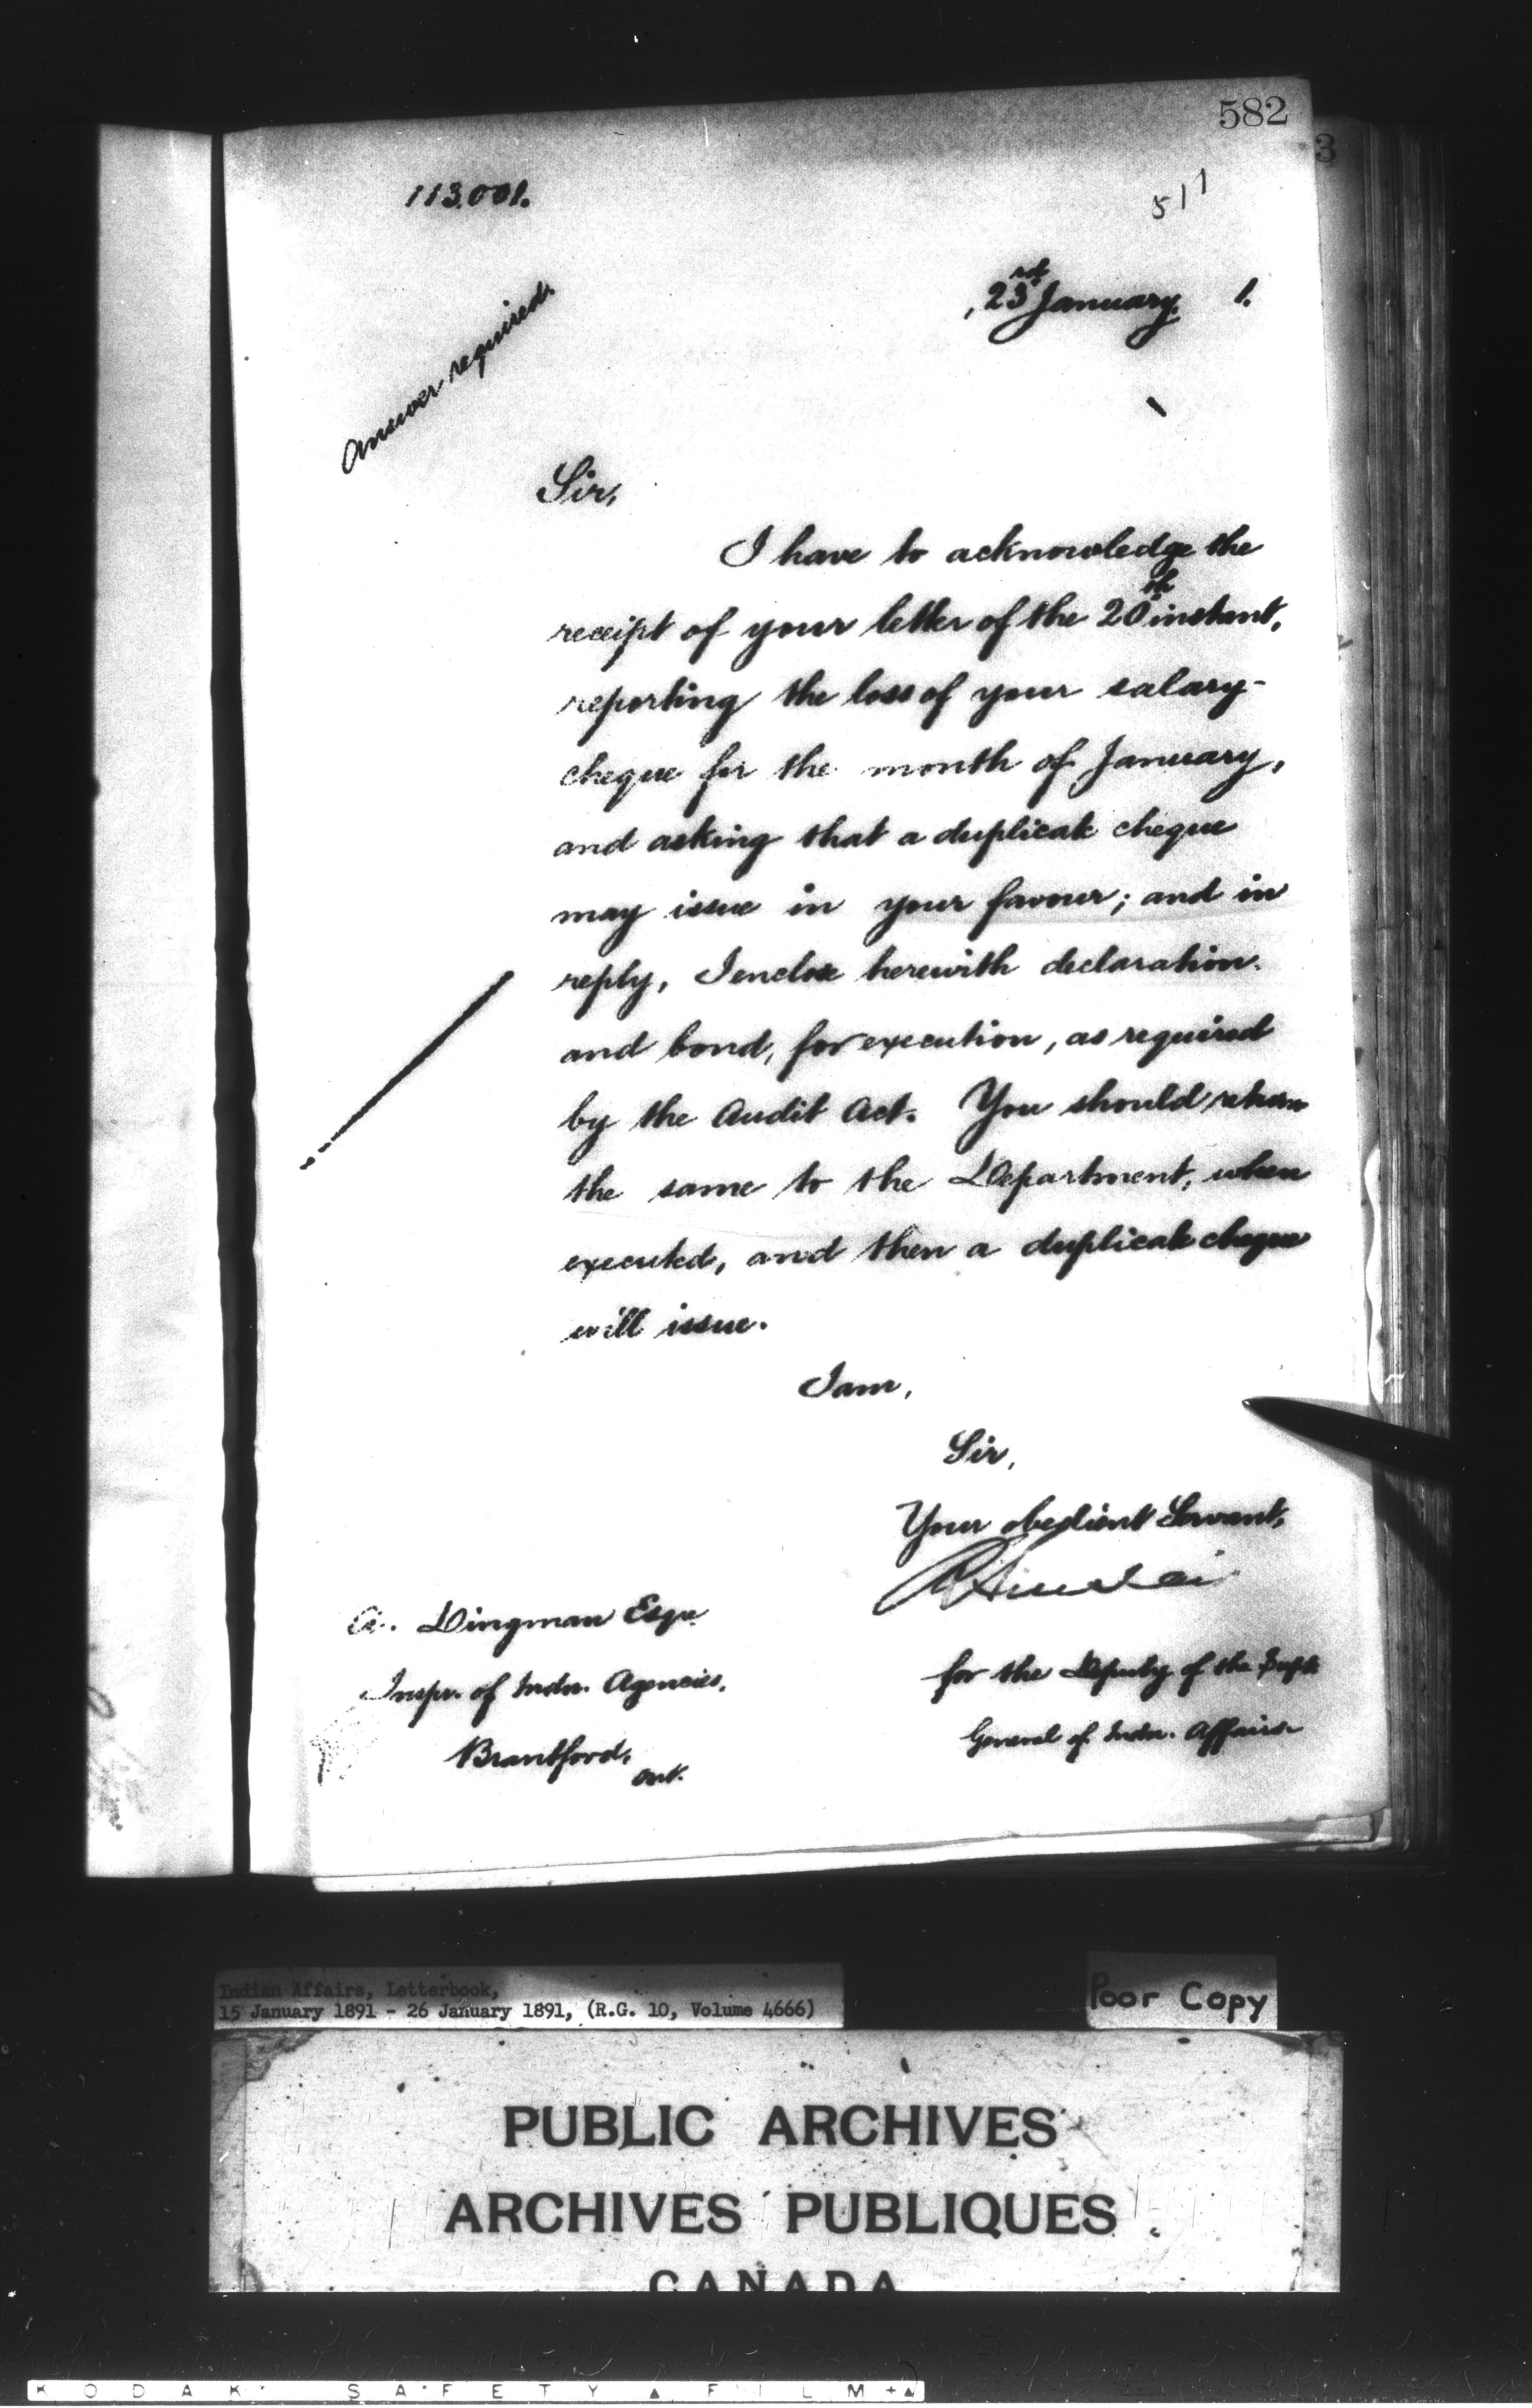 582
3
113.001.
511
23rd January. 1.
Answer required.
Sir,
I have to acknowledge the
receipt of your letter of the 20th instant,
reporting the loss of your salary-
cheque for the month of January,
and asking that a duplicate cheque
may issue in your favour; and in
reply, I enclose herewith declaration
and bond, for execution, as required
by the Audit Act. You should return
the same to the Department, when
executed, and then a duplicate cheque
will issue.
I am,
Sir,
Your obedient Servant,
A. Dingman Esqu.
for the Deputy of the Supt.
Inspr. of Indn. Agencies,
General of Indn. Affairs.
Brantford,
Ont.
Indian Affairs, Letterbook,
15 January 1891 - 26 January 1891, (R.G. 10, Volume 4666)
Poor Copy
PUBLIC ARCHIVES
ARCHIVES PUBLIQUES
CANADA
KODAK SAFETY FILM